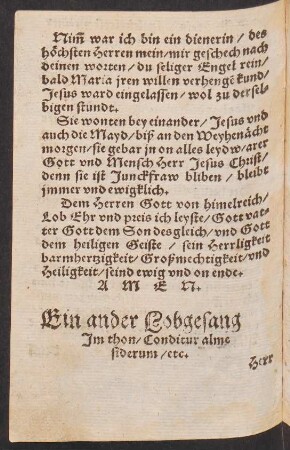 Nim̃ war ich bin ein dienerin / des
höchsten Herren mein / mir geschech nach
deinen worten / du seliger Engel rein /
bald Maria jren willen verhenge kund /
Jesus ward eingelassen / wol zu dersel-
bigen stundt.
Sie wonten bey einander / Jesus vnd
auch die Mayd / biß an den Weyhenächt
morgen / sie gebar jn on alles leydw / arer
Gott vnd Mensch Herr Jesus Christ /
denn sie ist Junckfraw bliben / bleibt
jmmer vnd ewigklich.
Dem Herren Gott von himelreich /
Lob Ehr vnd preis ich leyste / Gott vat-
ter Gott dem Son desgleich / vnd Gott
dem heiligen Geiste / sein Herrligkeit
barmhertzigkeit / Großmechtigkeit / vnd
Heiligkeit / seind ewig vnd on ende.
A M E N.
Ein ander Lobgesang
Im thon / Conditur alme
siderum / etc.
Herr